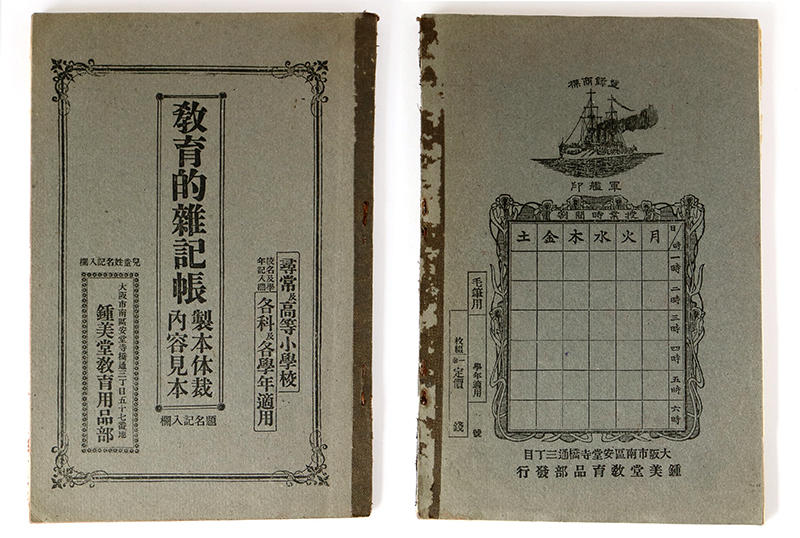 尋常及高等小學校
各科及各學年適用
校名及學
年記入欄
敎育的雜記帳
製本体裁
內容見本
題名記入欄
兒童姓名記入欄
大阪市南區安堂寺橋通三丁目五十七番地
鍾美堂敎育用品部
登錄商標
軍艦印
授業時間割
日 時
月 火 水 木 金 土
一時
二時
三時
四時
五時
六時
毛筆用
學年適用 號
枚綴一
定價 錢
大阪市南區安堂寺橋通三丁目
鍾美堂敎育品部發行